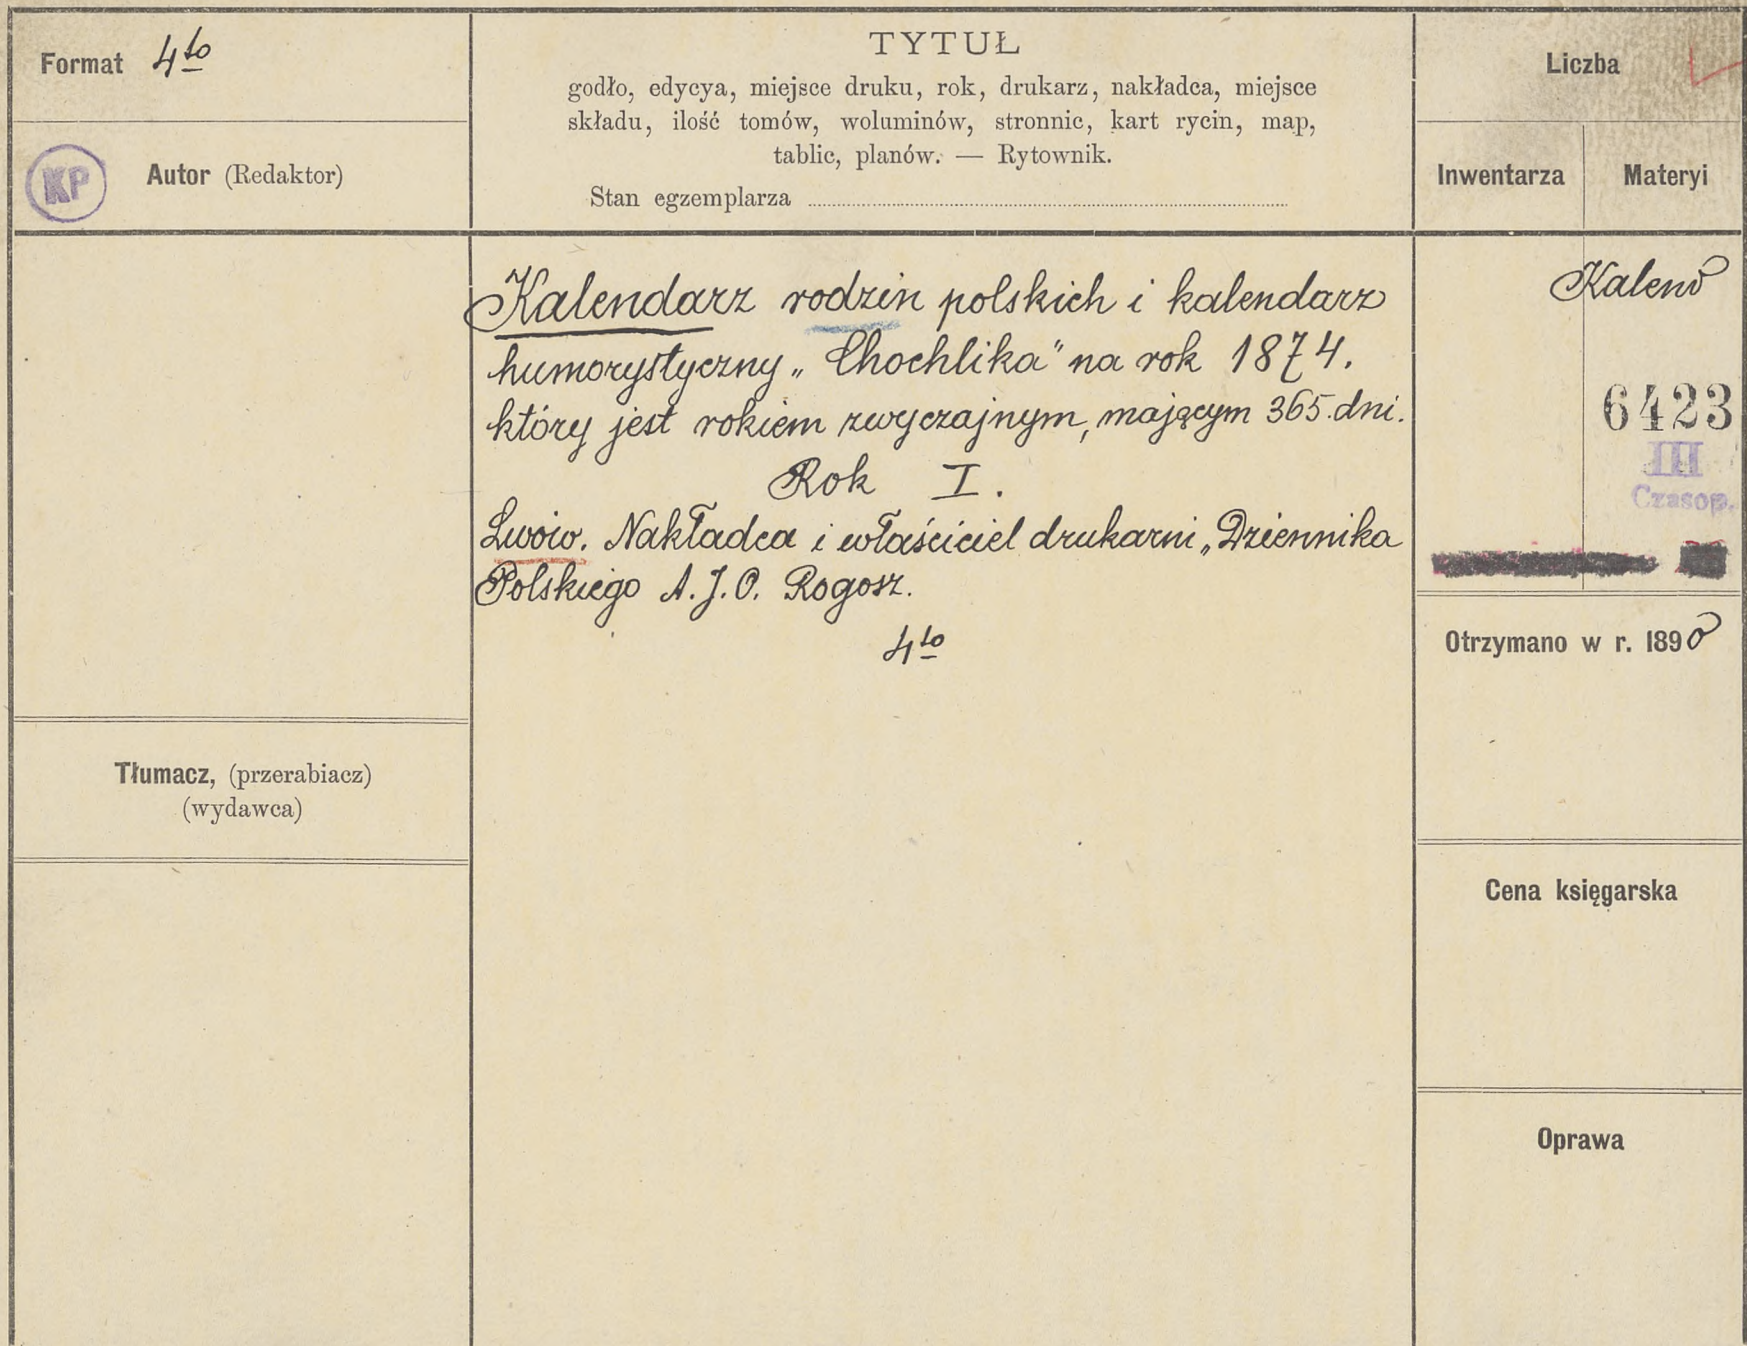 Format 4to
KP
Autor (Redaktor)
TYTUŁ
godło, edycya, miejsce druku, rok, drukarz, nakładca, miejsce
składu, ilość tomów, woluminów, stronnic, kart rycin, map,
tablic, planów. — Rytownik.
Stan egzemplarza
Liczba
Inwentarza
Materyi
Kalendarz rodzin polskich i kalendarz
humorystyczny „Chochlika" na rok 1874.
który jest rokiem zwyczajnym, mającym 365 dni.
Rok I.
Lwów. Nakładca i właściciel drukarni „Dziennika
Polskiego A. J. O. Rogosz.
4to
Kalend
6423
III
Czasop.
Otrzymano w r. 189
Tłumacz, (przerabiacz)
(wydawca)
Cena księgarska
Oprawa